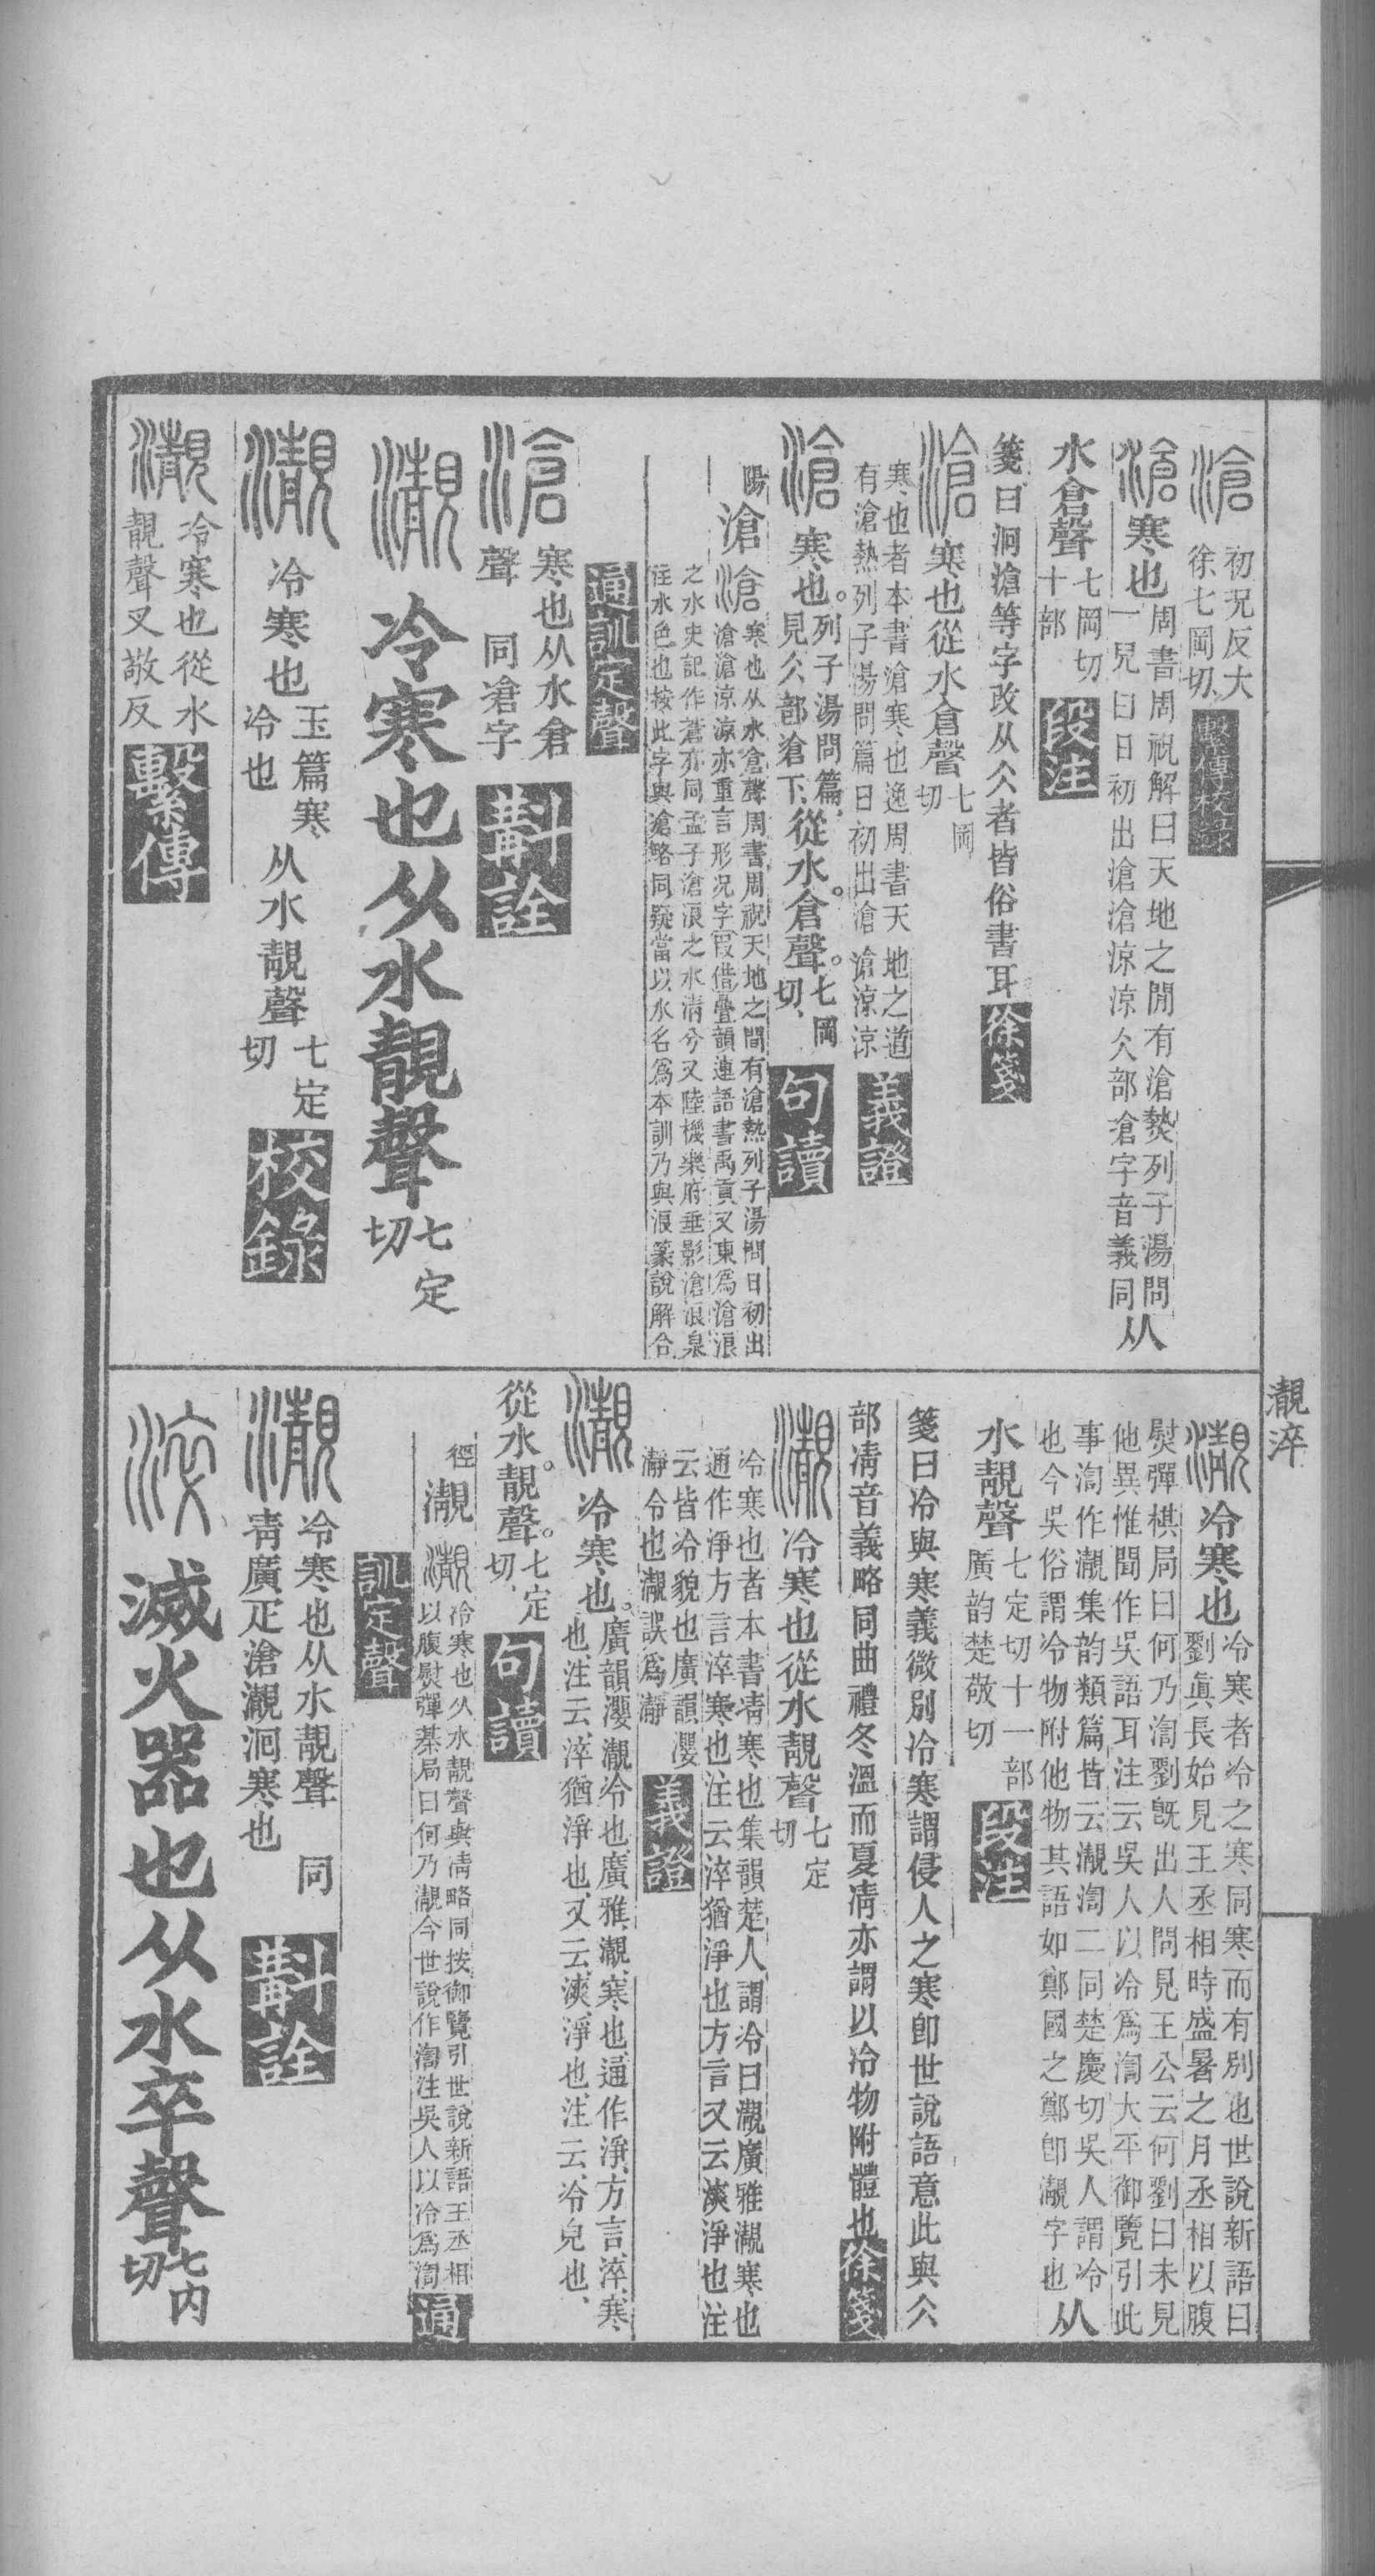 滄 初況反大
徐七岡切、繫傳校錄
滄 寒也 周書周祝解曰天地之閒有滄𤍠列子湯問
一兒曰日初出滄滄凉凉仌部滄字音義同 从
水倉聲 七岡切
十部 段注
箋曰泂滄等字改从仌者皆俗書耳 徐箋
滄 寒也從水倉聲 七岡
切
寒也者本書滄寒也逸周書天地之道
有滄熱列子湯問篇日初出滄滄涼涼 義證
滄 寒也。列子湯問篇、
見仌部滄下、從水。倉聲。七岡
切、 句讀
陽 滄 滄 寒也从水倉聲周書周祝天地之間有滄熱列子湯問日初出
滄滄涼涼亦重言形況字〔叚借〕疊韻連語書禹貢又東爲滄浪
之水史記作蒼亦同孟子滄浪之水清兮又陸機樂府垂影滄浪泉
注水色也按此字與滄略同疑當以水名爲本訓乃與浪篆說解合
通訓定聲
滄 寒也从水倉
聲 同凔字 斠詮
瀙 冷寒也从水靚聲 七定
切
瀞 冷寒也 玉篇寒
冷也 从水靚聲 七定
切 校錄
冷寒也從水
靚聲又敬反 繫傳
靚淬
冷寒也 冷寒者冷之寒同寒而有別也世說新語曰
劉眞長始見王丞相時盛暑之月丞相以腹
熨彈棋局曰何乃渹劉旣出人問見王公云何劉曰未見
他異惟聞作吳語耳注云吳人以冷爲渹大平御覽引此
事渹作瀙集韵類篇皆云瀙渹二同楚慶切吳人謂冷
也今吳俗謂冷物附他物其語如鄭國之鄭卽瀙字也 从
水靚聲 七定切十一部
廣韵楚敬切 段注
箋曰冷與寒義微別冷寒謂侵人之寒卽世說語意此與仌
部凊音義略同曲禮冬溫而夏凊亦謂以冷物附體也 徐箋
冷寒也從水靚聲 七定
切
冷寒也者本書凊寒也集韻楚人謂冷曰瀙廣雅瀙寒也
通作淨方言淬寒也注云淬猶淨也方言又云漺淨也注
云皆冷貌也廣韻瀴
瀞令也瀙誤爲瀞 義證
冷寒也。廣韻瀴瀙冷也、廣雅、瀙、寒也、通作淨、方言、淬、寒
也、注云、淬猶淨也、又云、漺、淨也、注云、冷皃也、
從水。靚聲。七定
切、 句讀
徑 瀙 冷寒也从水靚聲與凊略同按御覽引世說新語王丞相
以腹熨彈棊局曰何乃瀙今世說作渹注吳人以冷爲渹 通
訓定聲
冷寒也从水靚聲 同
凊廣疋滄瀙泂寒也 斠詮
淬 滅火器也从水卒聲 七內
切